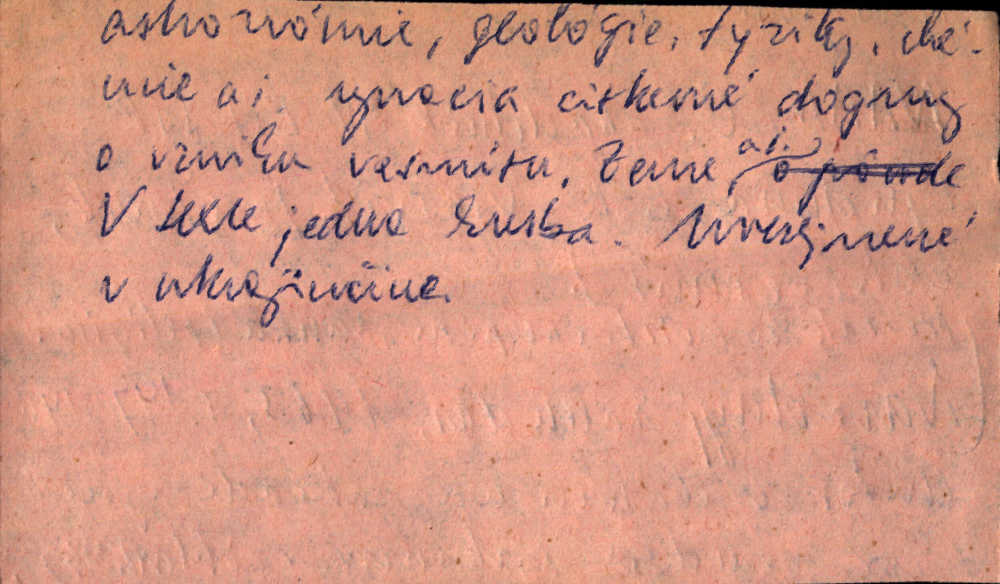 astronómie, geológie, fyziky, ché-
mie a i. vyvracia cirkevné dogmy
o vzniku vesmíru, Zeme, a i. o pôvode
V texte jedna kresba. Uverejnené
v ukrajinčine.